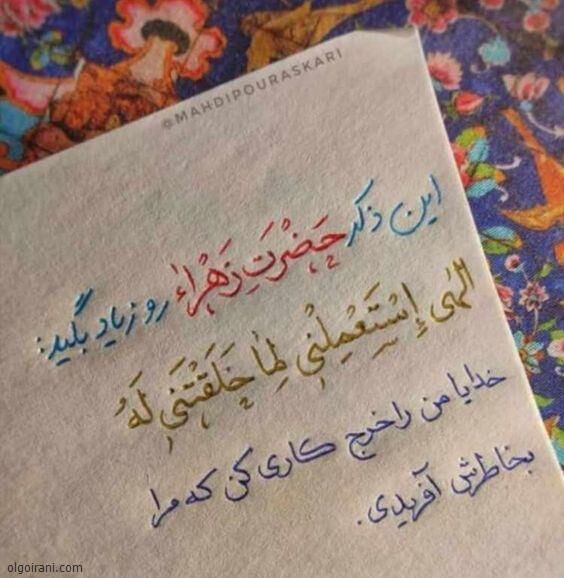 @MAHDIPOURASKARI
این ذکر حَضْرَتِ زَهْراء رو زیاد بگید:
الهی إِسْتَعْمِلْنِي لِما خَلَقْتَنِي لَهُ
خدایا من را خرج کاری کن که مرا
بخاطرش آفریدی.
olgoirani.com